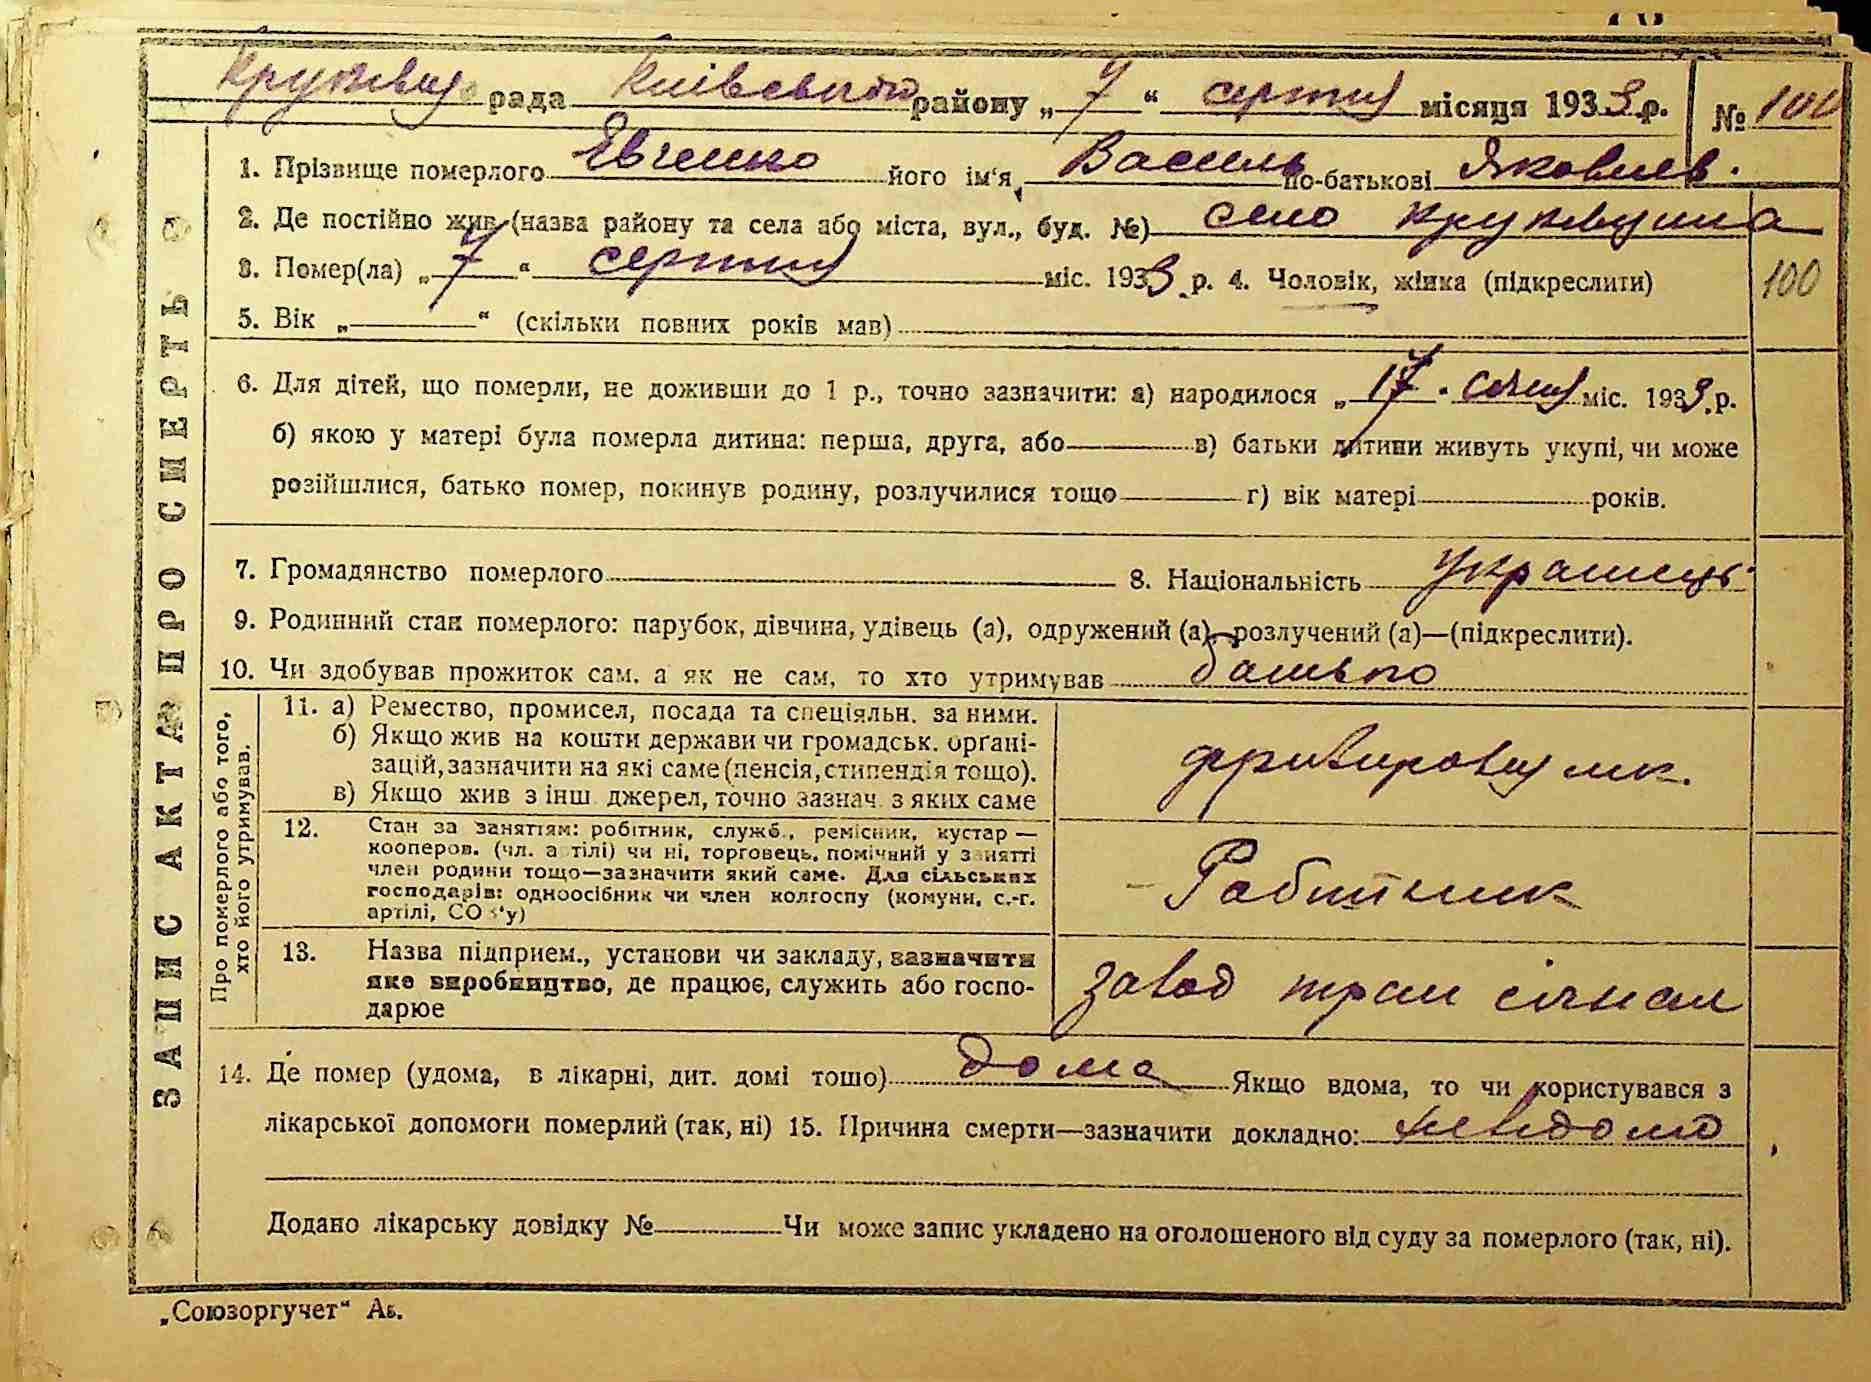 рада Київського району „ 7 “ серпня місяця 1933 р. № 100
1. Прізвище померлого Євченко його ім'я Василь по-батькові Яковлев.
2. Де постійно жив (назва району та села або міста, вул., буд. №) село
3. Помер(ла) „ 7 “ серпня міс. 1933 р. 4. Чоловік, жінка (підкреслити) 100
5. Вік „ “ (скільки повних років мав)
6. Для дітей, що померли, не доживши до 1 р., точно зазначити: а) народилося „ 17 " січня міс. 1933 р.
б) якою у матері була померла дитина: перша, друга, або в) батьки дитини живуть укупі, чи може
розійшлися, батько помер, покинув родину, розлучилися тощо г) вік матері років.
7. Громадянство померлого 8. Національність Українець
9. Родинний стан померлого: парубок, дівчина, удівець (а), одружений (а), розлучений (а)—(підкреслити).
10. Чи здобував прожиток сам, а як не сам, то хто утримував батько
ЗАПИС АКТА ПРО СМЕРТЬ
Про померлого або того,
хто його утримував.
11. а) Ремество, промисел, посада та спеціяльн. за ними.
б) Якщо жив на кошти держави чи громадськ. органі-
зацій, зазначити на які саме (пенсія, стипендія тощо).
в) Якщо жив з інш. джерел, точно зазнач. з яких саме
12. Стан за заняттям: робітник, служб., ремісник, кустар —
кооперов. (чл. артілі) чи ні, торговець, помічний у занятті
член родини тощо—зазначити який саме. Для сільських
господарів: одноосібник чи член колгоспу (комуни, с.-г.
артілі, СОЗ'у)
Робітник
13. Назва підприєм., установи чи закладу, зазначити
яке виробництво, де працює, служить або госпо-
дарює
завод тран сігнал
14. Де помер (удома, в лікарні, дит. домі тощо) дома Якщо вдома, то чи користувався з
лікарської допомоги померлий (так, ні) 15. Причина смерти—зазначити докладно: невідомо
Додано лікарську довідку № Чи може запис укладено на оголошеного від суду за померлого (так, ні).
„Союзоргучет“ Ав.